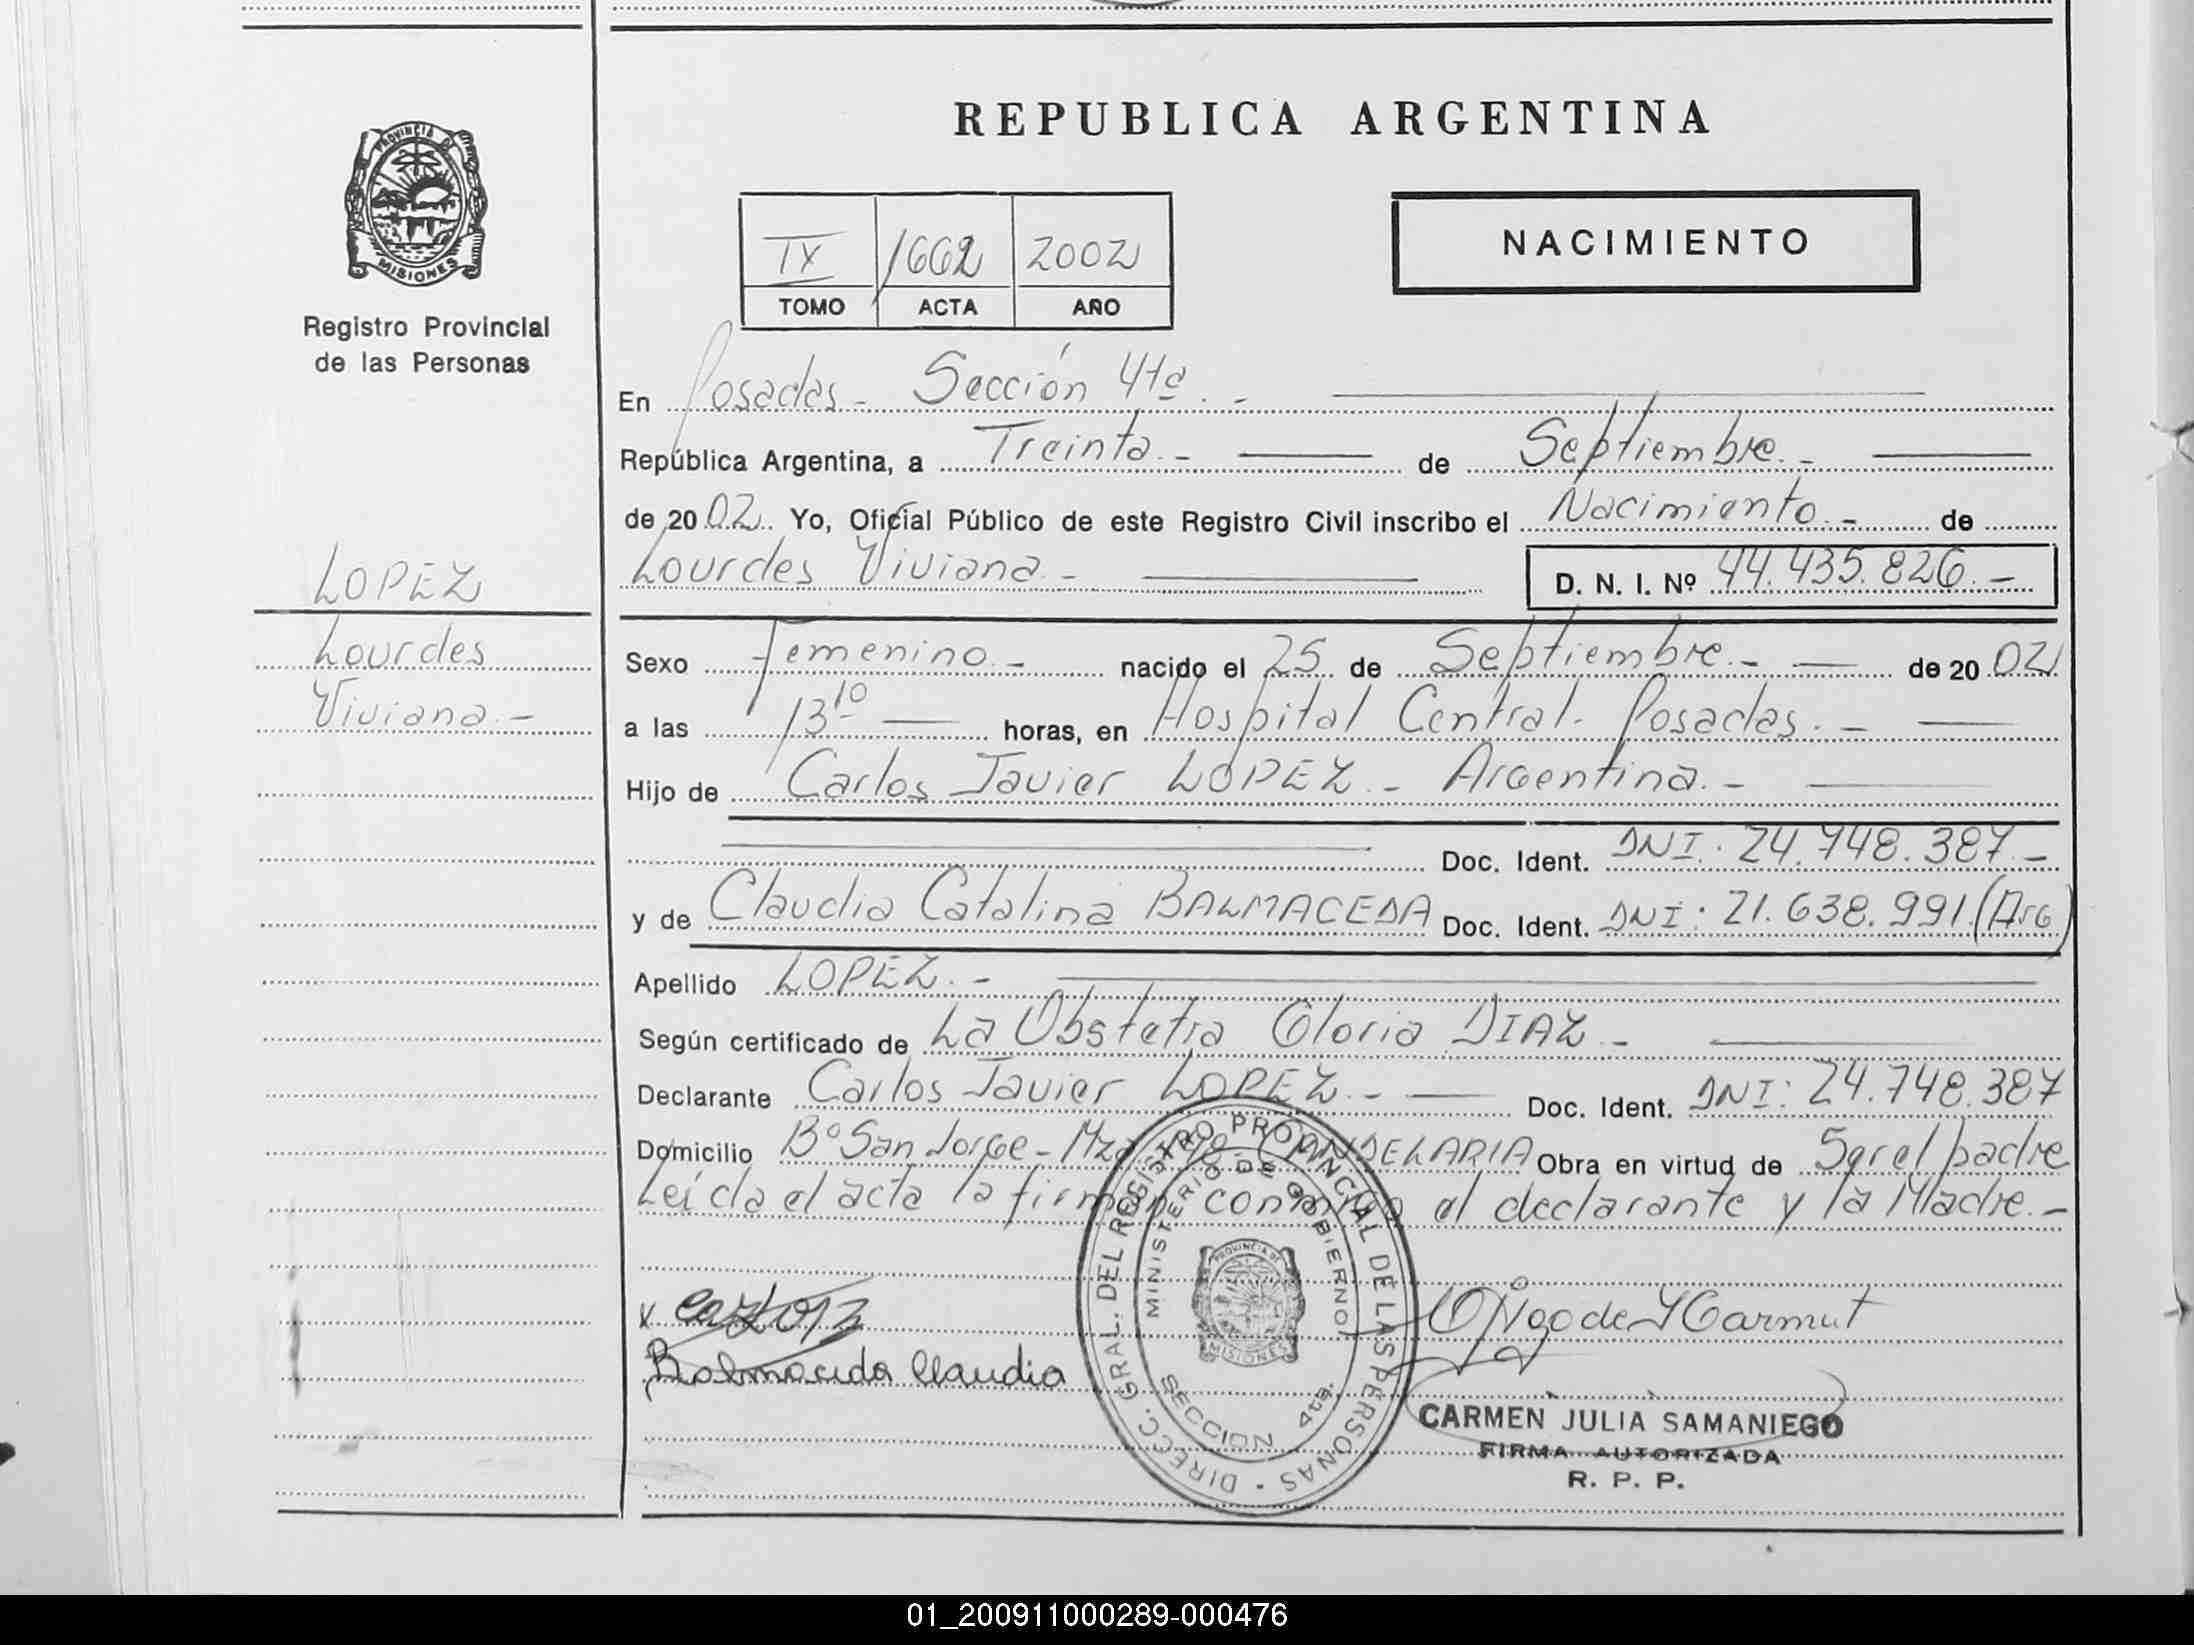 REPUBLICA ARGENTINA
PROVINCIA DE
MISIONES
Registro Provincial
de las Personas
IX 1662 2002
TOMO ACTA AÑO
NACIMIENTO
En Posadas - Sección 4ta. -
República Argentina, a Treinta. - de Septiembre. -
de 2002. Yo, Oficial Público de este Registro Civil inscribo el Nacimiento. - de
Lourdes Viviana - D. N. I. Nº 44.435.826. -
LOPEZ
Lourdes
Viviana. -
Sexo femenino. - nacido el 25 de Septiembre. - de 2002
a las 13 10 horas, en Hospital Central. Posadas. -
Hijo de Carlos Javier LOPEZ. - Argentina. -
Doc. Ident. DNI. 24.748.387. -
y de Claudia Catalina BALMACEDA Doc. Ident. DNI: 21.638.991. (Arg)
Apellido LOPEZ. -
Según certificado de La Obstetra Gloria DIAZ. -
Declarante Carlos Javier LOPEZ. - Doc. Ident. DNI: 24.748.387
Domicilio Bº San Jorge - Mza CANDELARIA Obra en virtud de Ser el padre
Leída el acta la firman conmigo el declarante y la Madre. -
Balmaceda Claudia
DIRECC. GRAL. DEL REGISTRO PROVINCIAL DE LAS PERSONAS
MINISTERIO DE GOBIERNO
PROVINCIA DE
MISIONES
SECCION 4ta.
CARMEN JULIA SAMANIEGO
FIRMA AUTORIZADA
R. P. P.
01_200911000289-000476